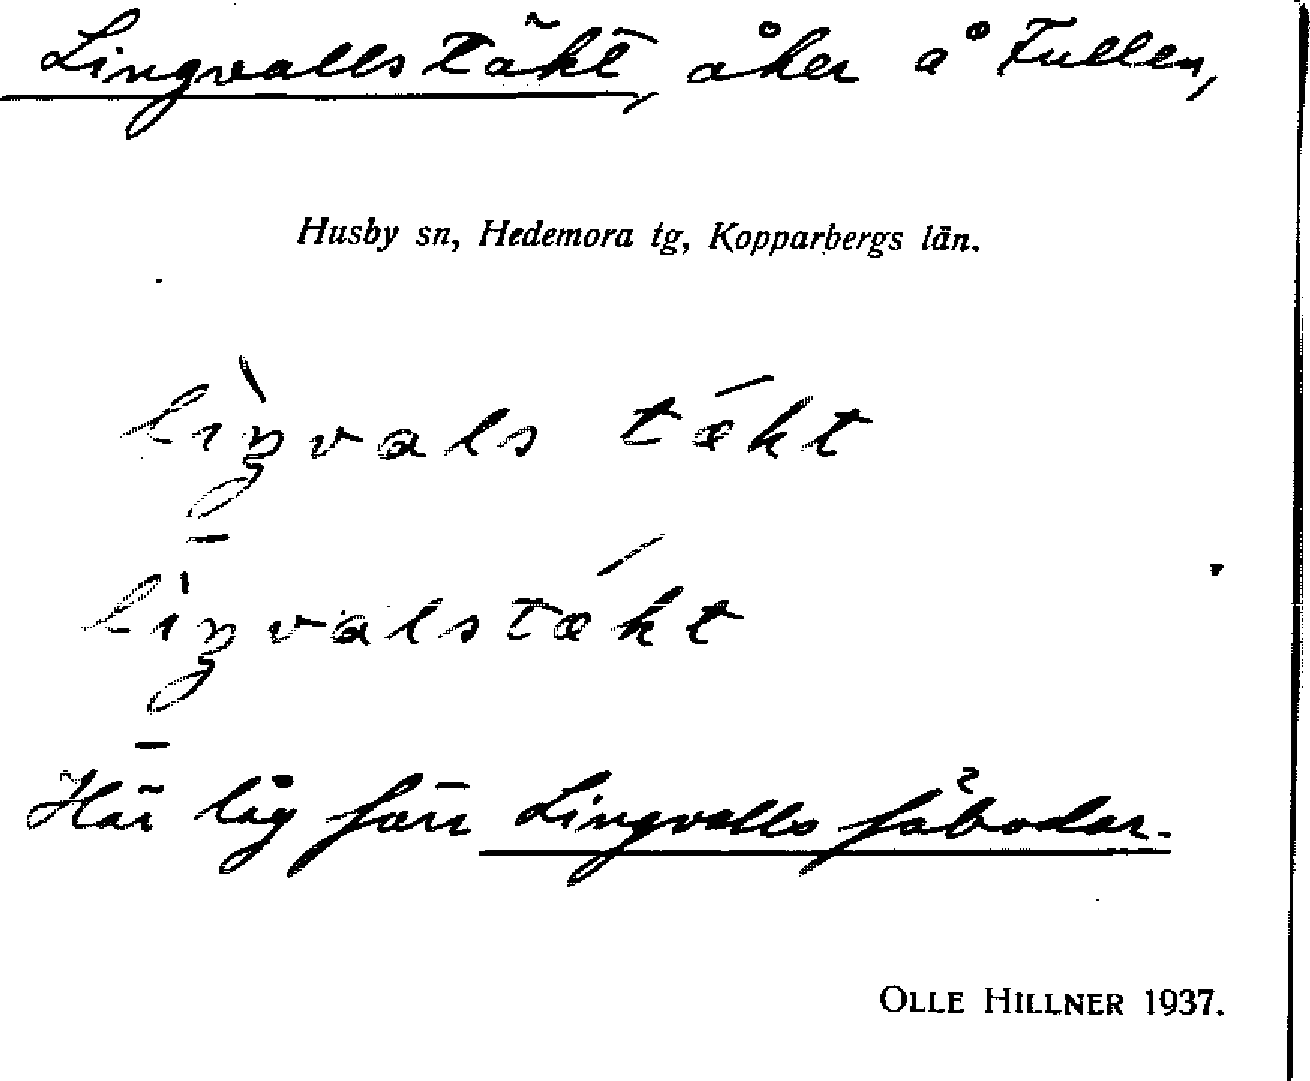 Lingvallstäkt, åker å Tullen,
Husby sn, Hedemora tg, Kopparbergs län.
liŋvals tækt
liŋvalstækt
Här låg förr Lingvalls fäbodar.
OLLE HILLNER 1937.